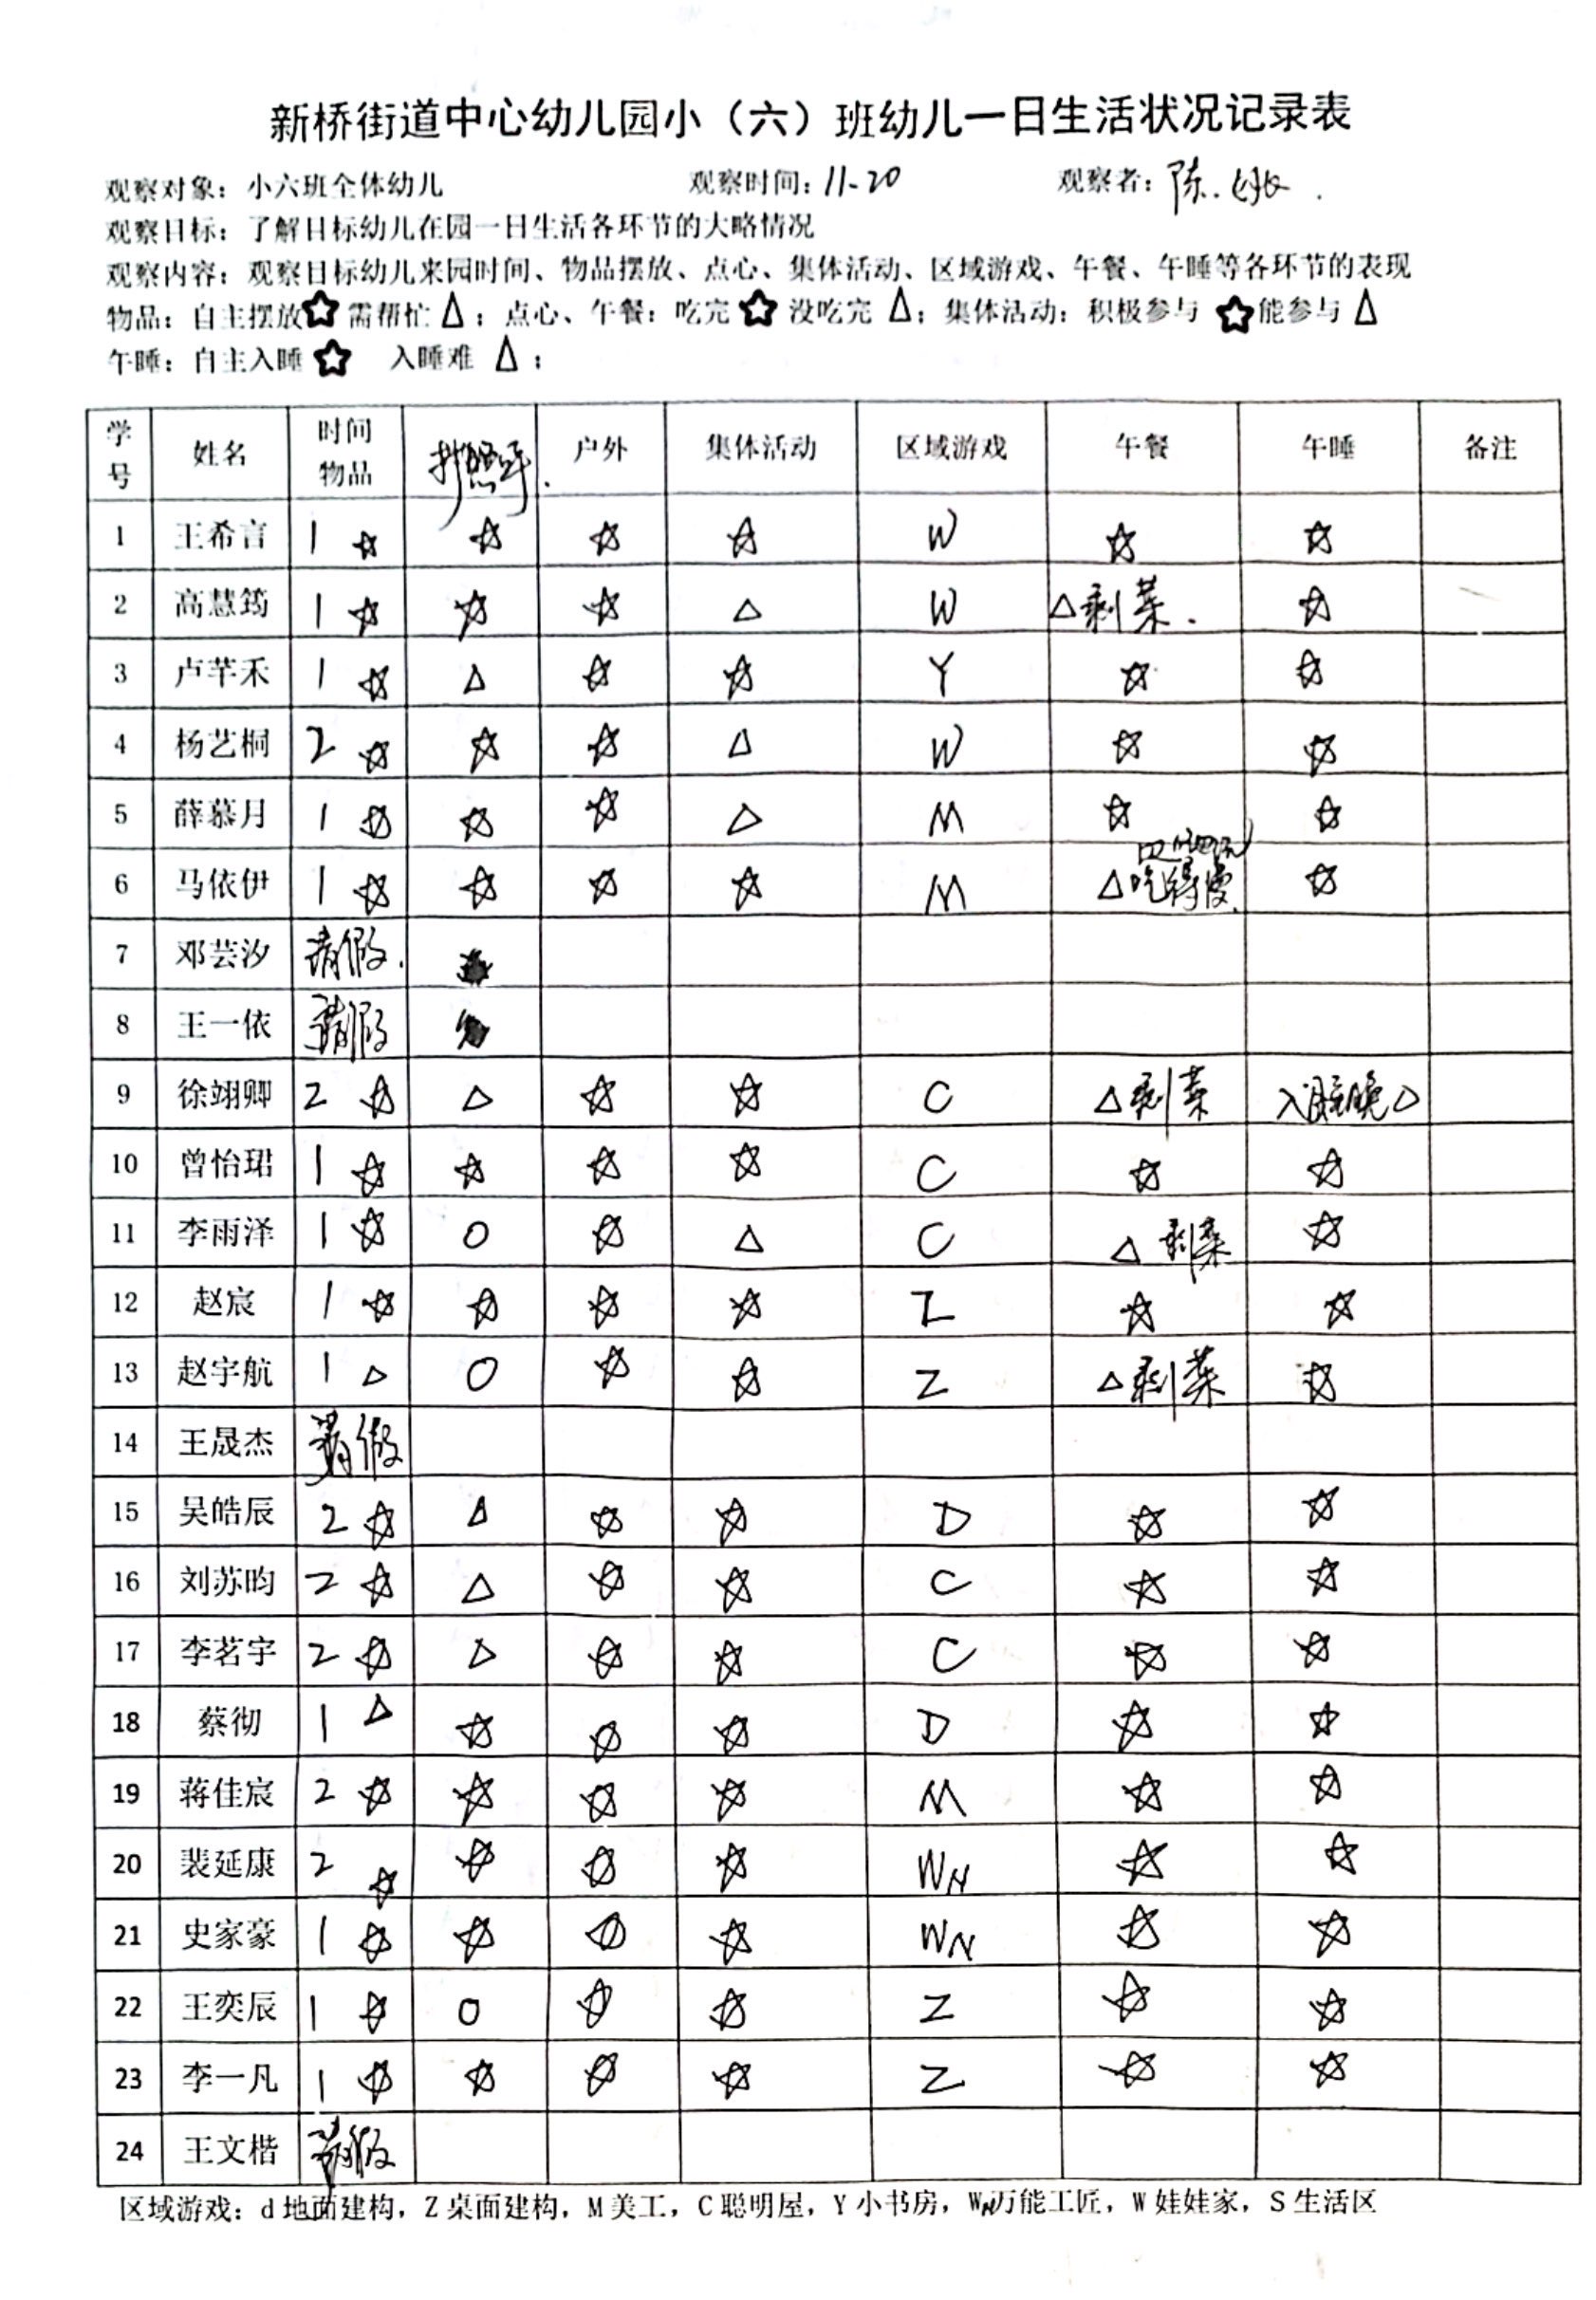 新桥街道中心幼儿园小（六）班幼儿一日生活状况记录表
观察对象：小六班全体幼儿 观察时间：11-20 观察者：陈
观察目标：了解目标幼儿在园一日生活各环节的大略情况
观察内容：观察目标幼儿来园时间、物品摆放、点心、集体活动、区域游戏、午餐、午睡等各环节的表现
物品：自主摆放☆需帮忙△；点心、午餐：吃完☆没吃完△；集体活动：积极参与☆能参与△
午睡：自主入睡☆ 入睡难△；
学号 姓名 时间物品 户外 集体活动 区域游戏 午餐 午睡 备注
1 王希言 1 ☆ ☆ ☆ ☆ W ☆ ☆
2 高慧筠 1 ☆ ☆ ☆ △ W △剩菜. ☆
3 卢芊禾 1 ☆ △ ☆ ☆ Y ☆ ☆
4 杨艺桐 2 ☆ ☆ ☆ △ W ☆ ☆
5 薛慕月 1 ☆ ☆ ☆ △ M ☆ ☆
6 马依伊 1 ☆ ☆ ☆ ☆ M △吃得慢 ☆
7 邓芸汐 请假.
8 王一依 请假
9 徐翊卿 2 ☆ △ ☆ ☆ C △剩菜 入睡晚△
10 曾怡珺 1 ☆ ☆ ☆ ☆ C ☆ ☆
11 李雨泽 1 ☆ O ☆ △ C △剩菜 ☆
12 赵宸 1 ☆ ☆ ☆ ☆ Z ☆ ☆
13 赵宇航 1 △ O ☆ ☆ Z △剩菜 ☆
14 王晟杰 请假
15 吴皓辰 2 ☆ △ ☆ ☆ D ☆ ☆
16 刘苏昀 2 ☆ △ ☆ ☆ C ☆ ☆
17 李茗宇 2 ☆ △ ☆ ☆ C ☆ ☆
18 蔡彻 1 △ ☆ ☆ ☆ D ☆ ☆
19 蒋佳宸 2 ☆ ☆ ☆ ☆ M ☆ ☆
20 裴延康 2 ☆ ☆ ☆ ☆ WN ☆ ☆
21 史家豪 1 ☆ ☆ ☆ ☆ WN ☆ ☆
22 王奕辰 1 ☆ O ☆ ☆ Z ☆ ☆
23 李一凡 1 ☆ ☆ ☆ ☆ Z ☆ ☆
24 王文楷 请假
区域游戏：d地面建构，Z桌面建构，M美工，C聪明屋，Y小书房，WN万能工匠，W娃娃家，S生活区